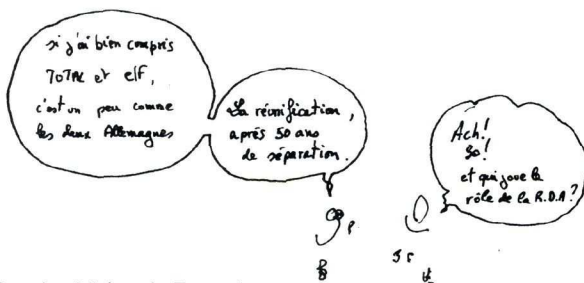 si j'ai bien compris
TOTAL et elf,
c'est un peu comme
les deux Allemagnes
La réunification,
après 50 ans
de séparation.
Ach!
So!
et qui joue le
rôle de la R.D.A?